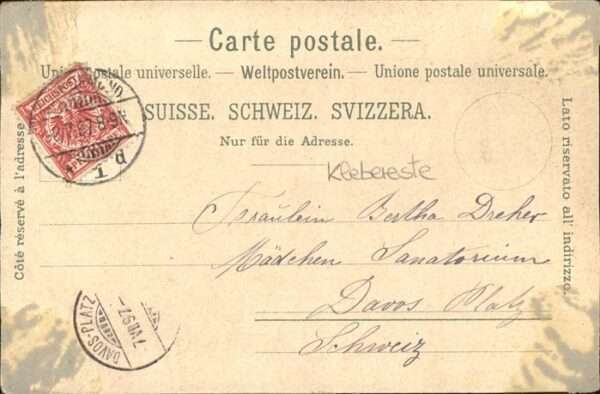 — Carte postale. —
Union postale universelle. — Weltpostverein. — Unione postale universale.
SUISSE. SCHWEIZ. SVIZZERA.
Nur für die Adresse.
Klebereste
Côté réservé à l'adresse
Lato riservato all' indirizzo.
Fräulein Bertha Dreher
Mädchen Sanatorium
Davos Platz
Schweiz
DAVOS-PLATZ
7.VII.97